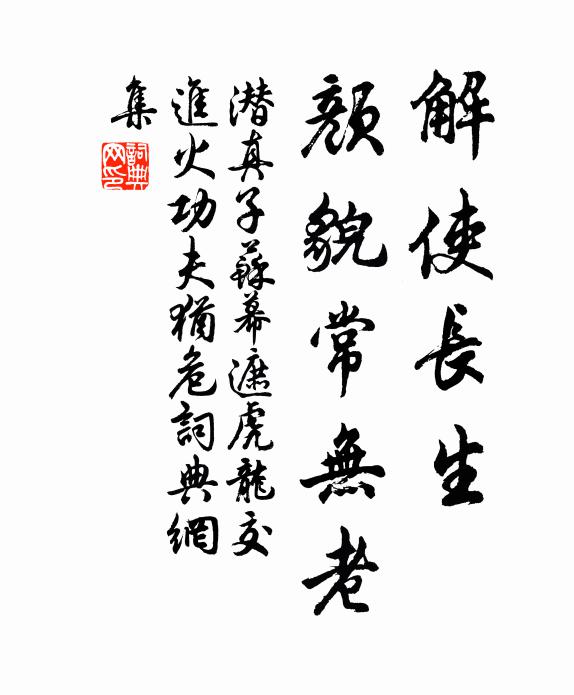 解使長生
顏貌常無老
潜真子蘇幕遮虎龍交
進火功夫猶危詞典網
集
詞典
网印